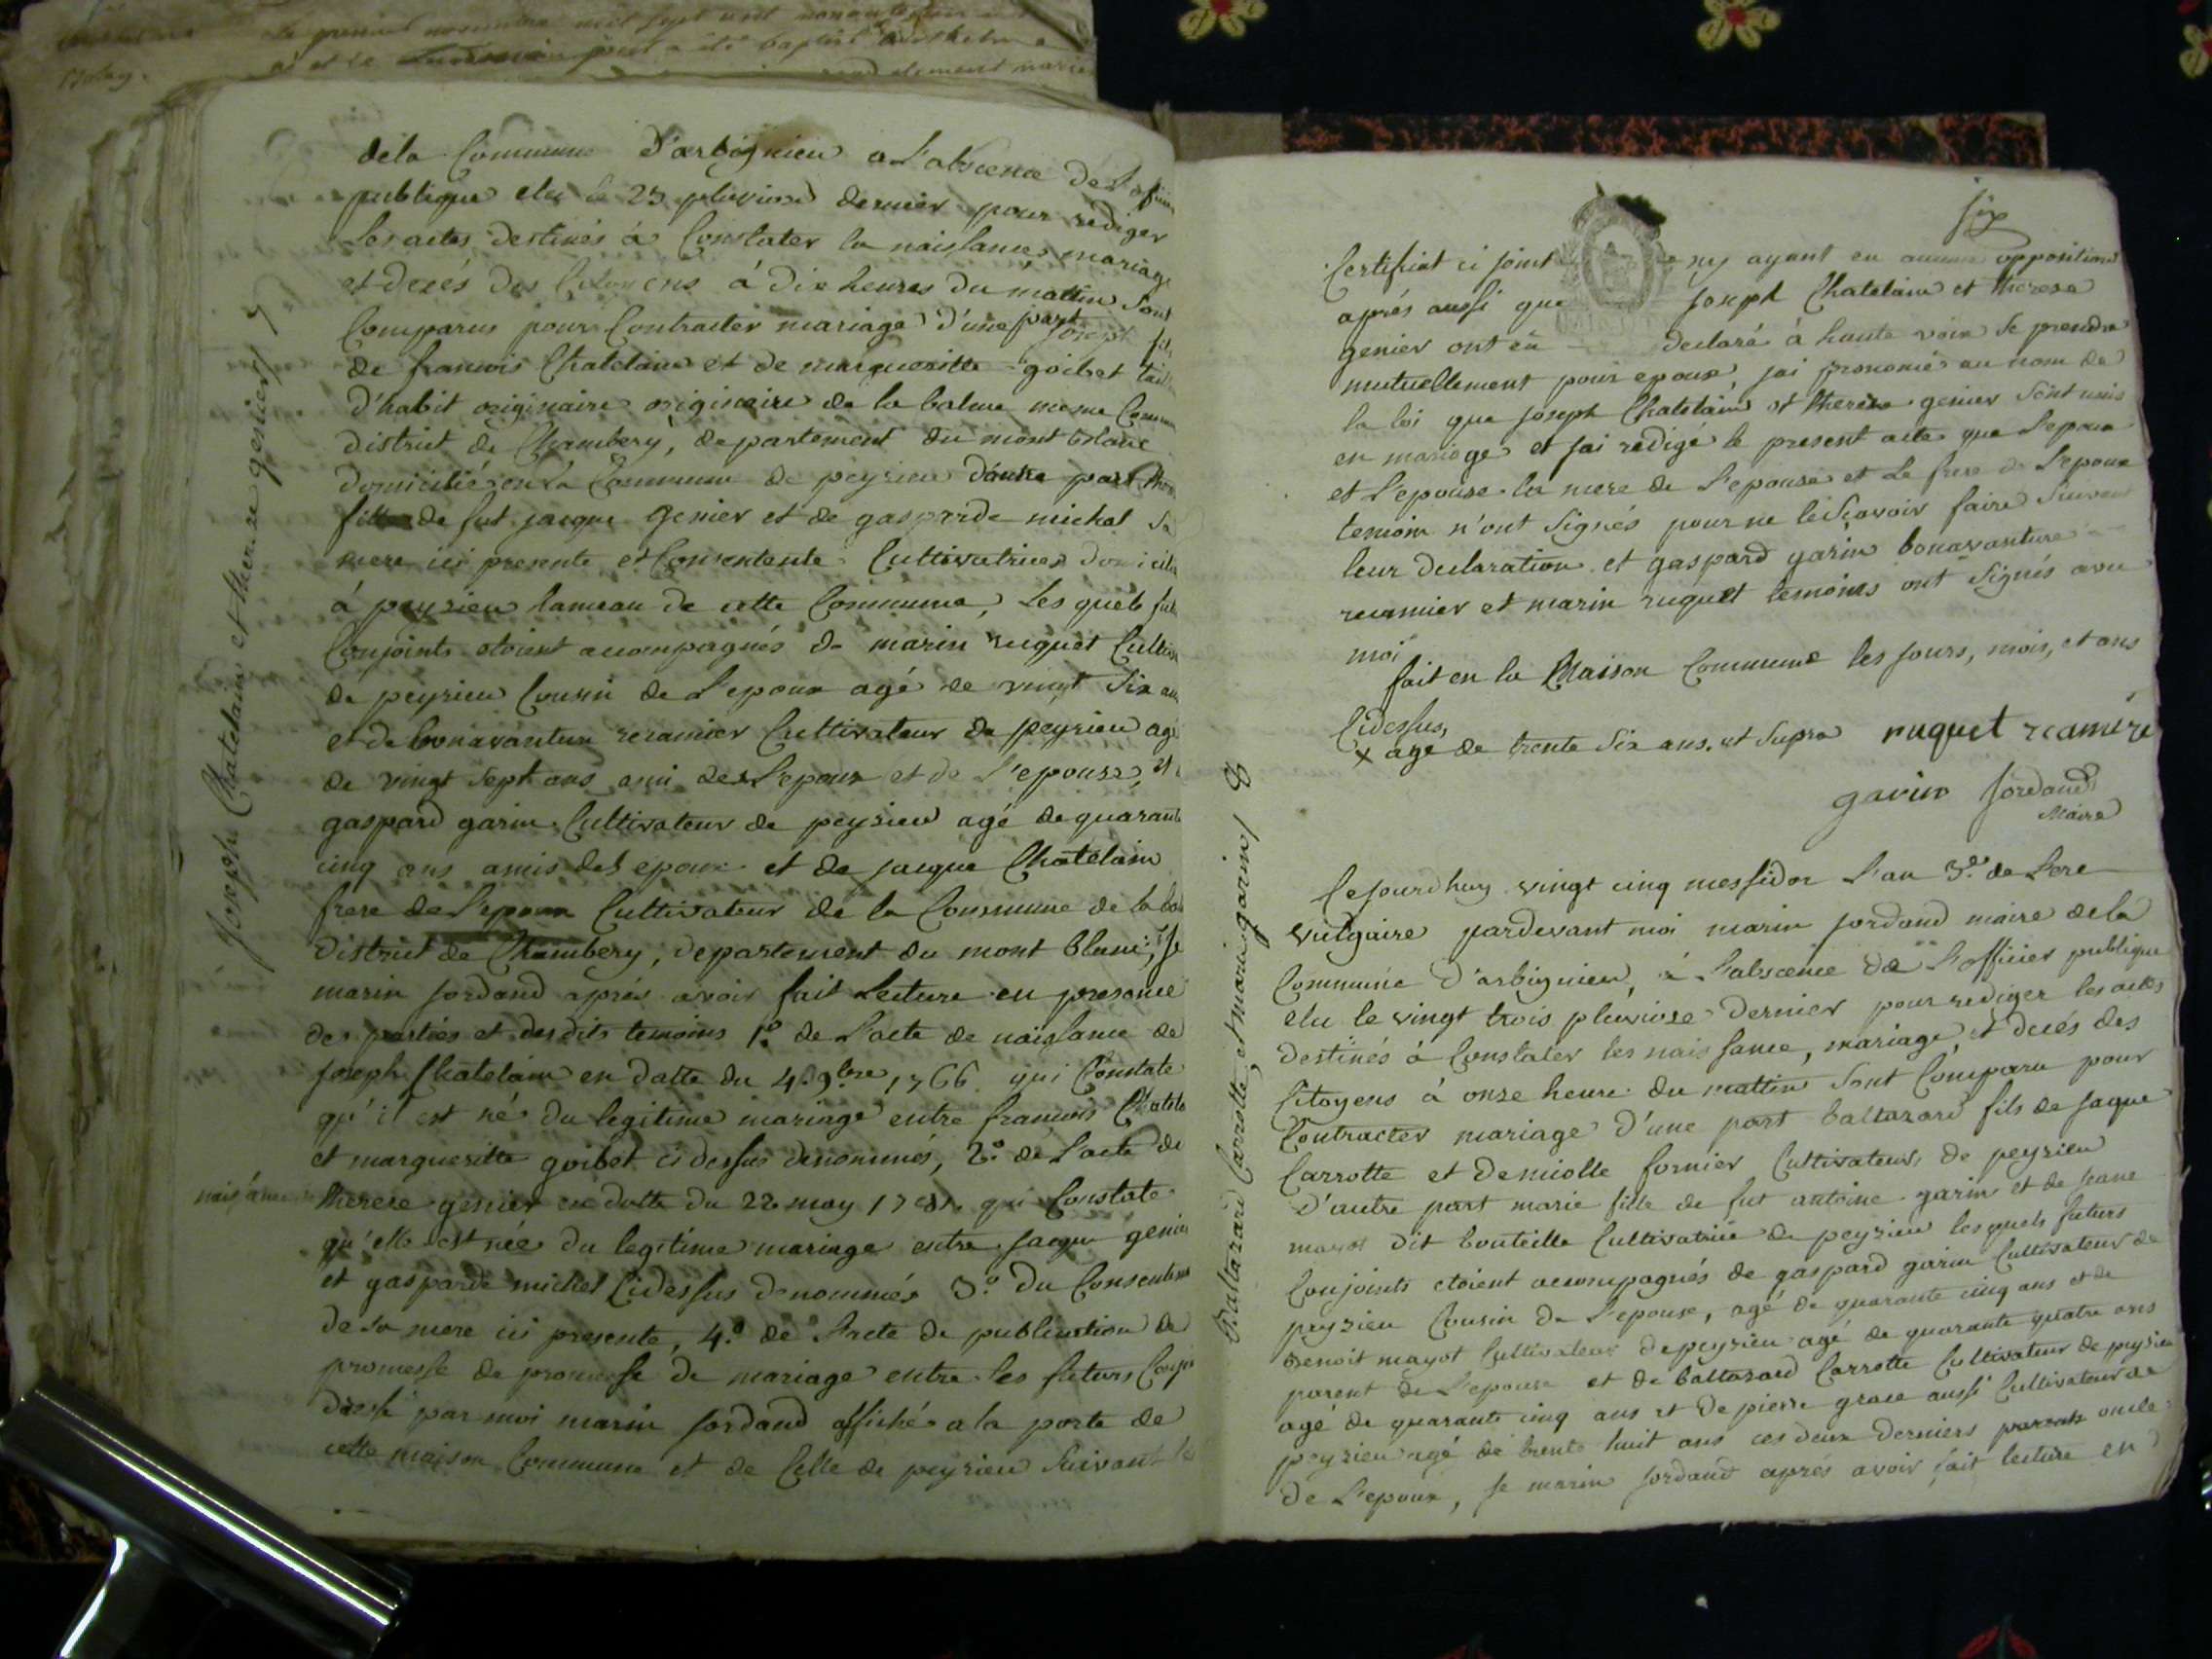 dela Commune d'arbignieu a L'absence de L'officier
publique elu le 23 pluviose dernier pour rédiger
les actes destinés à Constater la naissance, mariage
et decés des Citoyens à dix heures du mattin Sont
Comparus pour Contracter mariage d'une part joseph fils
de francois Chatelain et de margueritte goibet
d'habit originaire originaire de la balme mesme
district de Chambery, departement du mont blanc
domicilié en la Commune de peyrieu d'autre part
fille de fut jacque genier et de gasparde michel sa
mere ici presente et Consentente Cultivatrice
à peyrieu hameau de cette Commune, Les quels
Conjoints etoient acompagnés de marin ruquet
de peyrieu Cousin de L'epoux agé de vingt Six
et de bonavanture recamier Cultivateur de peyrieu agé
de vingt Sept ans ami de L'epoux et de l'epouse, et
gaspard garin Cultivateur de peyrieu agé de quarante
cinq ans amis des epoux et de jacque Chatelain
frere de L'epoux Cultivateur de la Commune de la
district de Chambery, departement du mont blanc, Je
marin jordand aprés avoir fait Lecture en presence
des parties et desdits temoins 1º. de L'acte de naissance de
joseph Chatelain en datte du 4. 9bre 1766 qui Constate
qu'il est né du legitime mariage entre francois
et margueritte goibet ci dessus denommés, 2º. de L'acte de
naissance therese genier en datte du 22 may qui Constate
qu'elle est née du legitime mariage entre jacque genier
et gasparde michel Cidessus denommés 3º. du
de sa mere ici presente, 4º. de L'acte de publication de
promesse de promesse de mariage entre les futurs
dressé par moi marin jordand affiché a la porte de
cette maison Commune et de Celle de peyrieu Suivant le
Joseph Chatelain et therese genier / 7
six
Certifiat ci joint ny ayant eu aucune opposition
aprés aussi que joseph Chatelain et therese
genier ont eu declaré à haute voix se prendre
mutuellement pour epoux, jai prononcé au nom de
la loi que joseph Chatelain et therese genier sont unis
en mariage et jai redigé le present acte que L'epoux
et L'epouse la mere de L'epouse et Le frere de L'epoux
temoin n'ont Signés pour ne le sçavoir faire Suivant
leur declaration et gaspard garin bonavanture
recamier et marin ruquet temoins ont Signés avec
moi
fait en la Maison Commune les jours, mois, et ans
Cidessus,
x agé de trente Six ans. ut Supra ruquet
garin jordand
Maire
Baltazard Carrotte, et marie garin / 8
Cejourdhuy vingt cinq messidor L'an 3e. de L'ere
vulgaire pardevant moi marin jordand maire dela
Commune d'arbignieu, à L'abscence de L'officier publique
elu le vingt trois pluviose dernier pour rediger les actes
destinés à Constater les naissance, mariage, et decés des
Citoyens à onze heure du mattin Sont Comparu pour
Contracter mariage d'une part baltazard fils de jaque
Carrotte et de fornier Cultivateurs de peyrieu
D'autre part marie fille de fut antoine garin et de jeane
mayot dit bouteille Cultivatrice de peyrieu les quels futurs
Conjoints etoient accompagnés de gaspard garin Cultivateur de
peyrieu Cousin de L'epouse, agé de quarante cinq ans et de
Benoit mayot Cultivateur de peyrieu agé de quarante quatre ans
parent de L'epouse et de baltazard Carrotte Cultivateur de peyrieu
agé de quarante cinq ans et de pierre grace aussi Cultivateur de
peyrieu agé de trente huit ans ces deux derniers oncle
de L'epoux, Je marin jordand aprés avoir fait lecture en